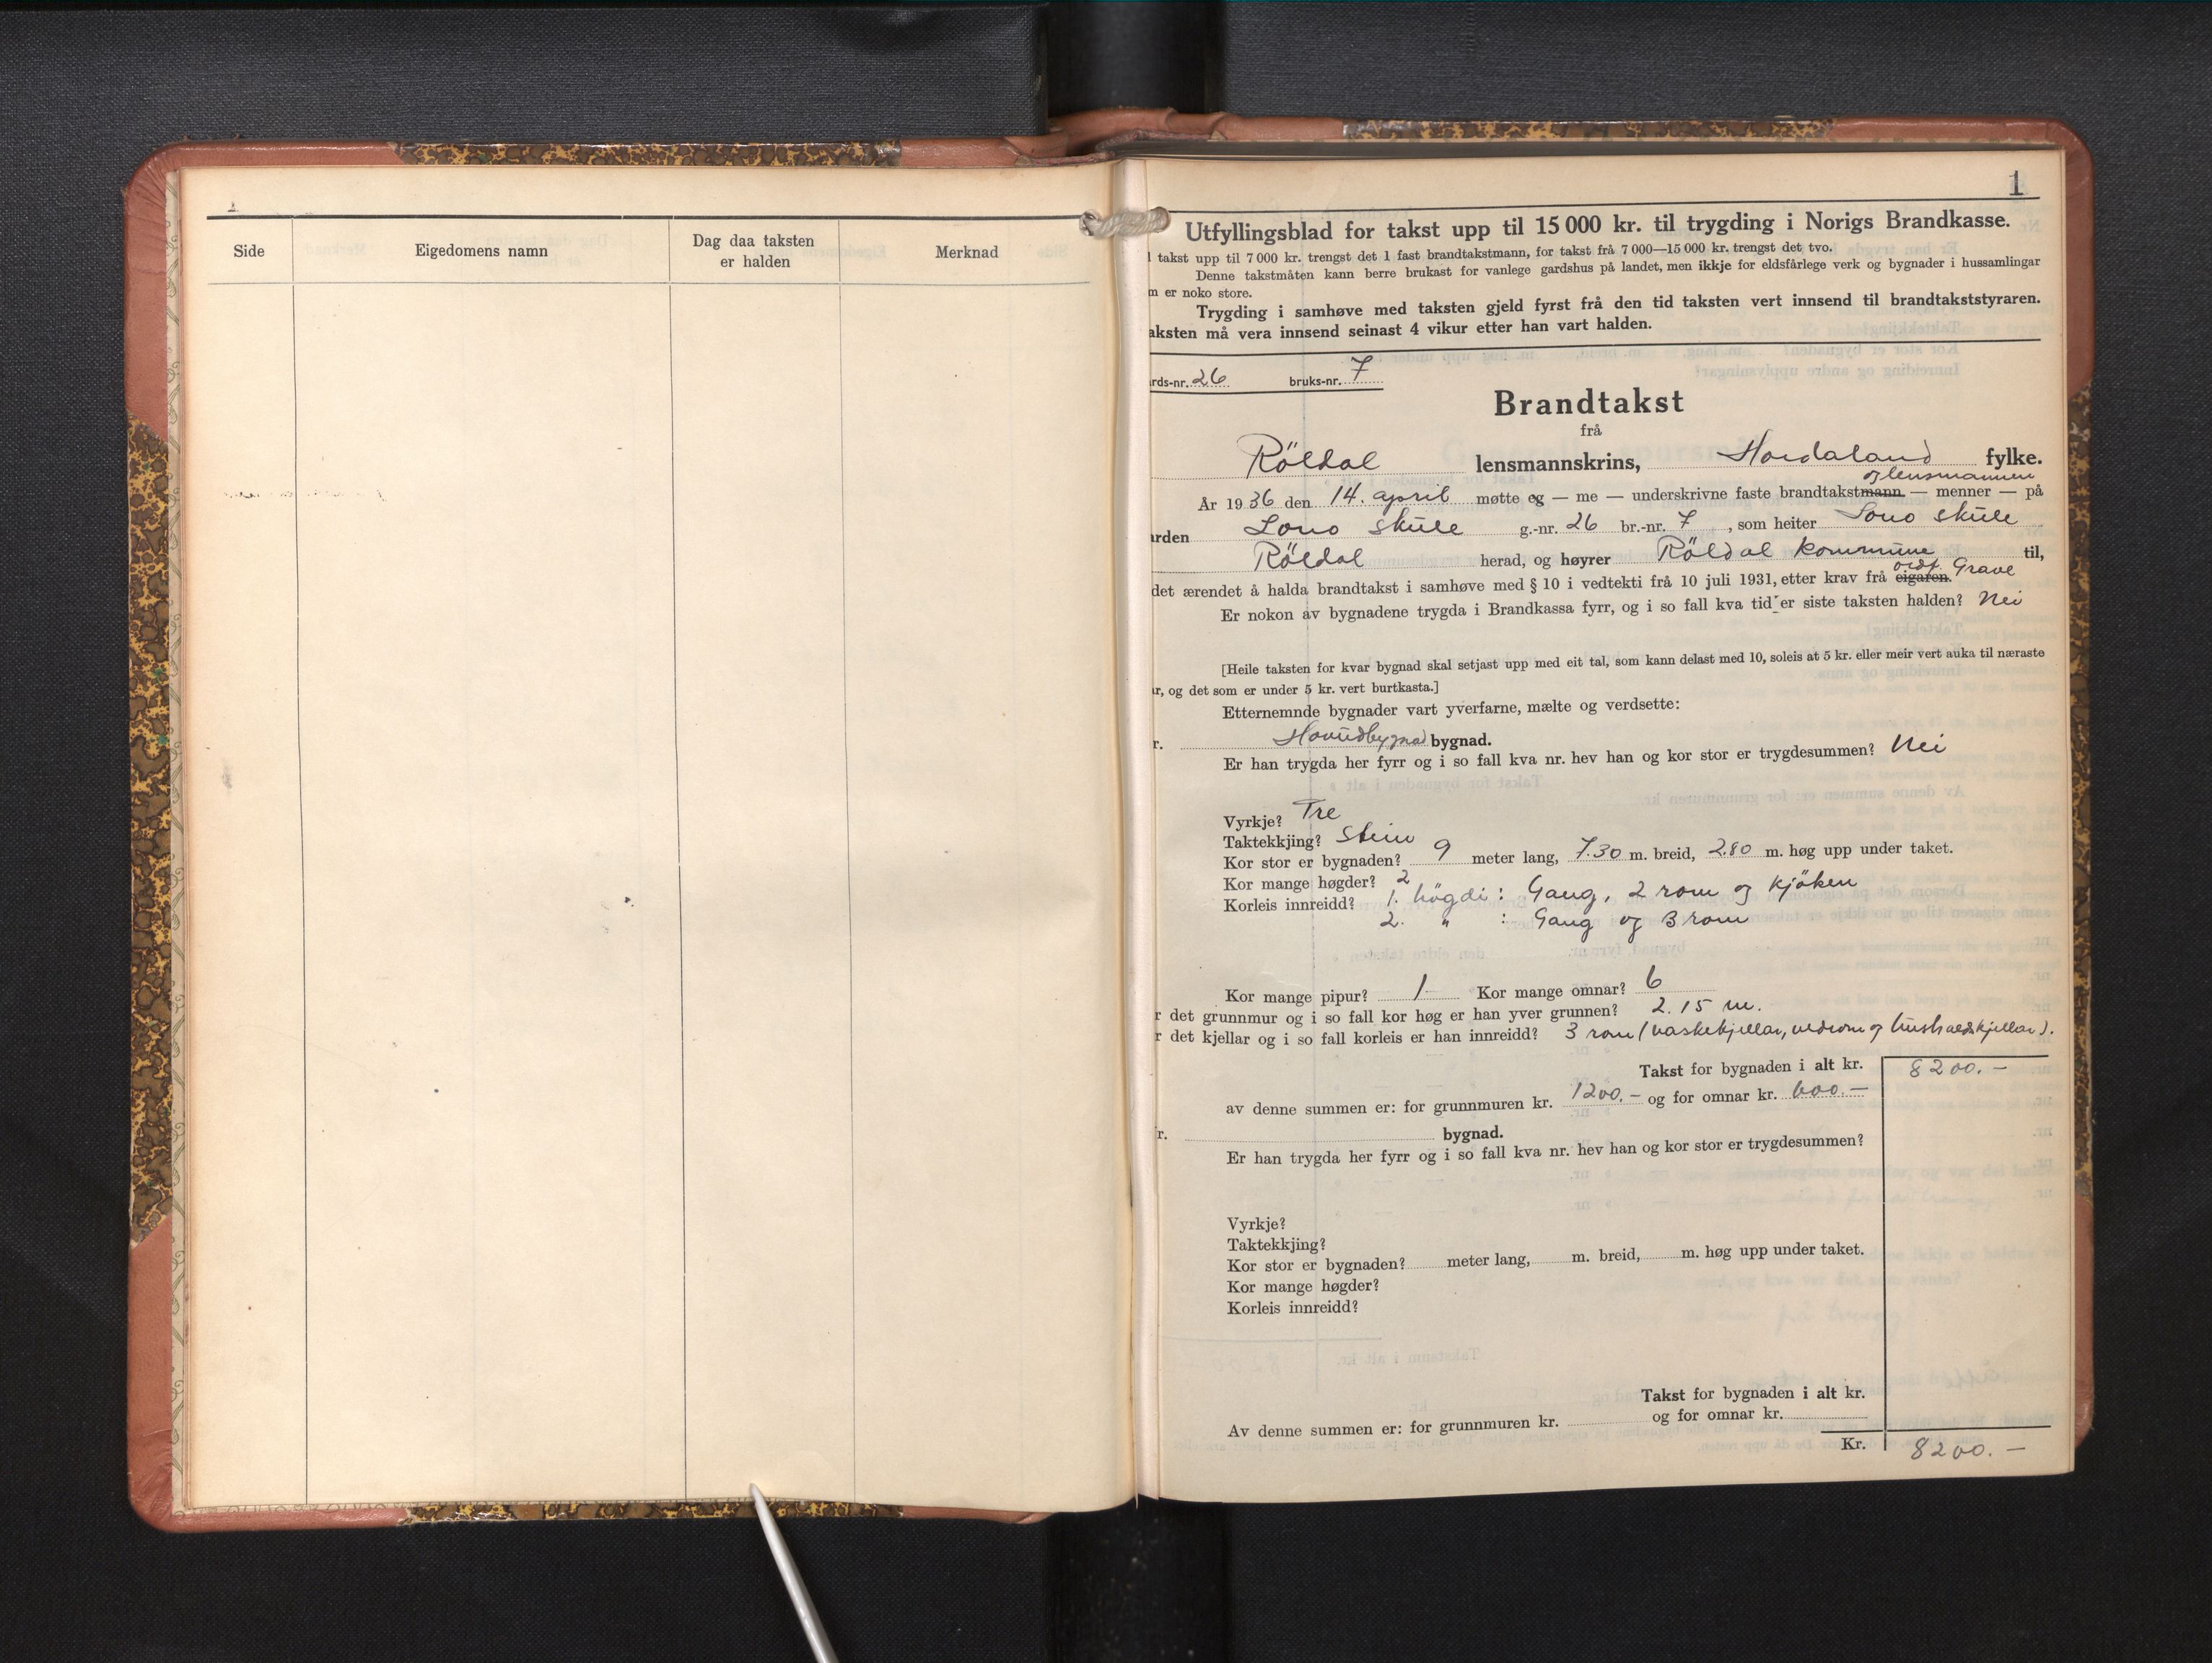 Side Eigedomens namn Dag daa taksten er halden Merknad
1
Utfyllingsblad for takst upp til 15 000 kr. til trygding i Norigs Brandkasse.
takst upp til 7 000 kr. trengst det 1 fast brandtakstmann, for takst frå 7 000—15 000 kr. trengst det tvo.
Denne takstmåten kann berre brukast for vanlege gardshus på landet, men ikkje for eldsfårlege verk og bygnader i hussamlingar
m er noko store.
Trygding i samhøve med taksten gjeld fyrst frå den tid taksten vert innsend til brandtakststyraren.
aksten må vera innsend seinast 4 vikur etter han vart halden.
rds-nr. 26 bruks-nr. 7
Brandtakst
frå
Röldal lensmannskrins, Hordaland fylke.
og lensmannen
År 1936 den 14. april møtte eg — me — underskrivne faste brandtakstmann — menner — på
arden Lono skule g.-nr. 26 br.-nr. 7, som heiter Lono skule
Röldal herad, og høyrer Röldal kommune til,
ordf. Grave
det ærendet å halda brandtakst i samhøve med § 10 i vedtekti frå 10 juli 1931, etter krav frå eigaren.
Er nokon av bygnadene trygda i Brandkassa fyrr, og i so fall kva tid er siste taksten halden? Nei
[Heile taksten for kvar bygnad skal setjast upp med eit tal, som kann delast med 10, soleis at 5 kr. eller meir vert auka til næraste
r, og det som er under 5 kr. vert burtkasta.]
Etternemnde bygnader vart yverfarne, mælte og verdsette:
r. Hovudbygnad bygnad.
Er han trygda her fyrr og i so fall kva nr. hev han og kor stor er trygdesummen? Nei
Vyrkje? Tre
Taktekkjing? Stein
Kor stor er bygnaden? 9 meter lang, 7.30 m. breid, 2.80 m. høg upp under taket.
Kor mange høgder? 2
Korleis innreidd? 1. högdi: Gang, 2 rom og kjöken
2. " : Gang og 3 rom
Kor mange pipur? 1 Kor mange omnar? 6
r det grunnmur og i so fall kor høg er han yver grunnen? 2.15 m.
r det kjellar og i so fall korleis er han innreidd? 3 rom (vaskekjellar, vedrom og hushaldskjellar).
Takst for bygnaden i alt kr. 8200.—
av denne summen er: for grunnmuren kr. 1200.— og for omnar kr. 600.—
r. bygnad.
Er han trygda her fyrr og i so fall kva nr. hev han og kor stor er trygdesummen?
Vyrkje?
Taktekkjing?
Kor stor er bygnaden? meter lang, m. breid, m. høg upp under taket.
Kor mange høgder?
Korleis innreidd?
Takst for bygnaden i alt kr.
Av denne summen er: for grunnmuren kr. og for omnar kr.
Kr. 8200.—